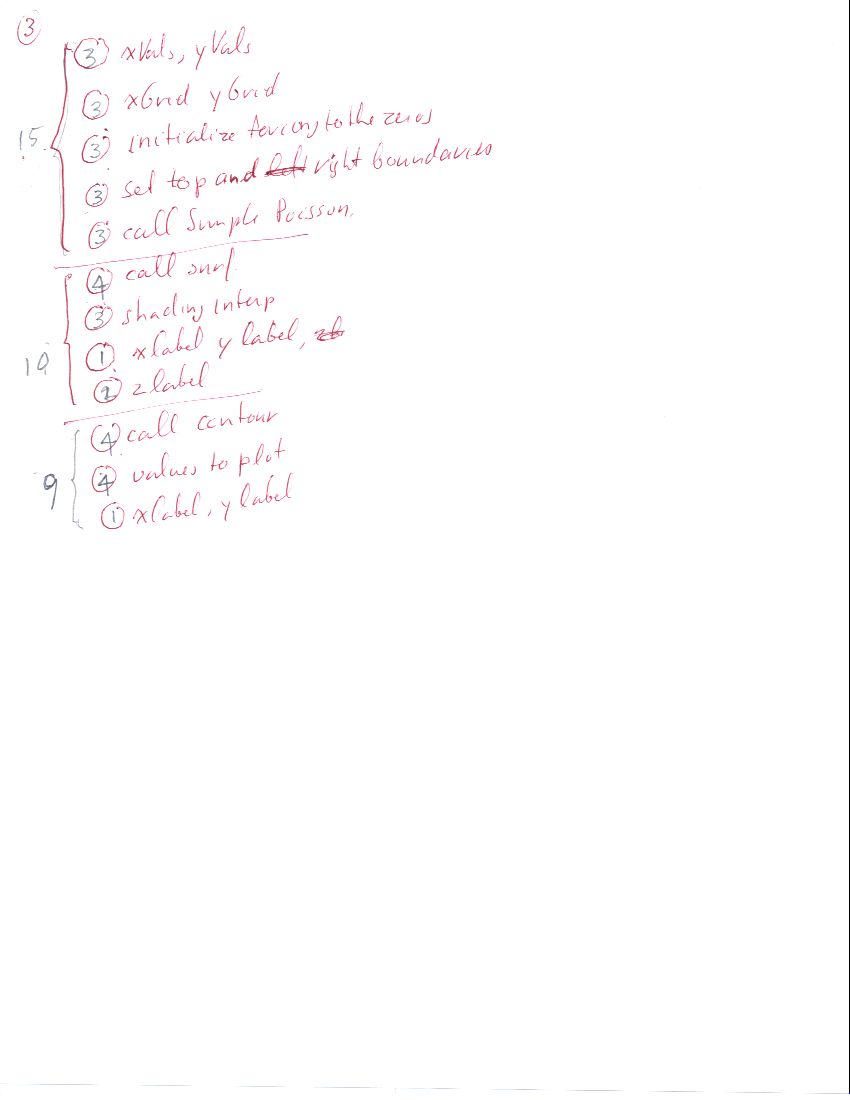 3
3 xVals, yVals
3 xGrid yGrid
15 3 initialize forcing to the zeros
3 set top and left right boundaries
3 call Simple Poisson.
4 call surf
3 shading interp
10 1 xlabel ylabel, zl
2 zlabel
4 call contour
9 4 values to plot
1 xlabel, ylabel